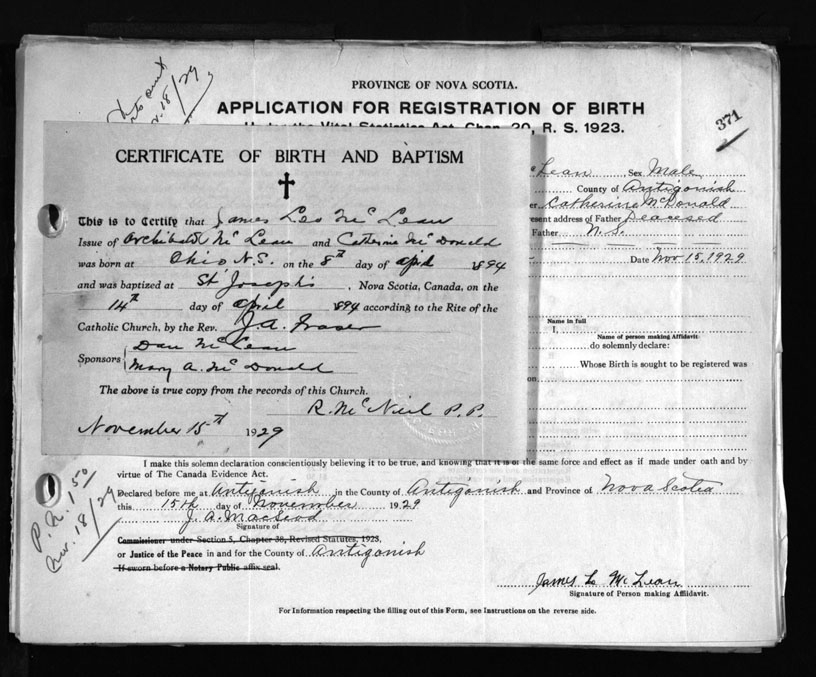 PROVINCE OF NOVA SCOTIA.
APPLICATION FOR REGISTRATION OF BIRTH
Under the Vital Statistics Act, Chap. 20, R. S. 1923.
371
Nov. 18/29
CERTIFICATE OF BIRTH AND BAPTISM
This is to Certify that James Leo McLean
Issue of Archibald McLean and Catherine McDonald
was born at Ohio N.S. on the 8th day of April 1894
and was baptized at St Joseph's, Nova Scotia, Canada, on the
14th day of April 1894 according to the Rite of the
Catholic Church, by the Rev. J. A. Fraser
Sponsors { Dan McLean
Mary A. McDonald
The above is true copy from the records of this Church.
R. McNeil P.P.
November 15th 1929
Lean Sex Male
County of Antigonish
er Catherine McDonald
esent address of Father Deceased
Father N.S.
Date Nov 15, 1929
Name in full
I,
Name of person making Affidavit.
do solemnly declare:
Whose Birth is sought to be registered was
on
I make this solemn declaration conscientiously believing it to be true, and knowing that it is of the same force and effect as if made under oath and by
virtue of The Canada Evidence Act.
Declared before me at Antigonish in the County of Antigonish and Province of Nova Scotia
this 15th day of November 1929
J. A. MacLeod
Signature of
Commissioner under Section 5, Chapter 38, Revised Statutes, 1923,
or Justice of the Peace in and for the County of Antigonish
If sworn before a Notary Public affix seal.
James L McLean
Signature of Person making Affidavit.
For Information respecting the filling out of this Form, see Instructions on the reverse side.
P.N. 1.50
Nov. 18/29